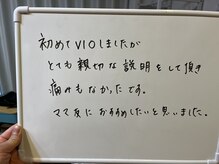 初めてVIOしましたが
とても親切な説明をして頂き
痛みもなかったです。
ママ友におすすめしたいと思いました。